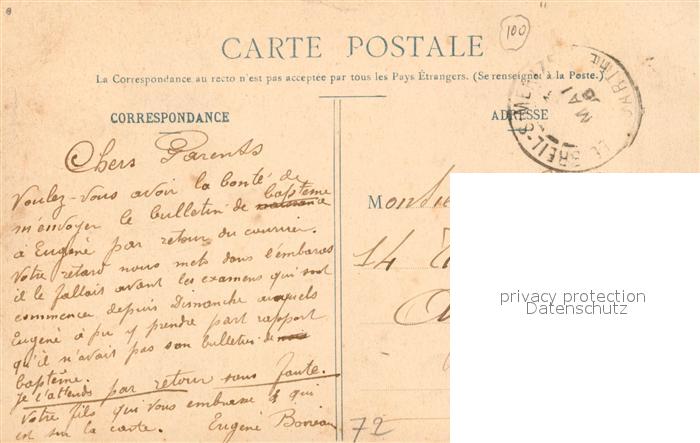 100
CARTE POSTALE
La Correspondance au recto n'est pas acceptée par tous les Pays Étrangers. (Se renseigner à la Poste.)
LE BREIL-S-MERIZE
SARTHE
MAI
CORRESPONDANCE
ADRESSE
Chers Parents
Voulez-vous avoir la bonté de
m'envoyer le bulletin de baptème
à Eugène par retour du courrier.
Votre retard nous mets dans l'embaras
il le fallait avant les examens qui sont
commencé depuis Dimanche auquels
Eugène à pu y prendre part rapport
qu'il n'avait pas son bulletin de
baptême.
Je l'attends par retour sans faute.
Votre fils qui vous embrasse & qui
est sur la carte. Eugène
Monsie
14
72
privacy protection
Datenschutz